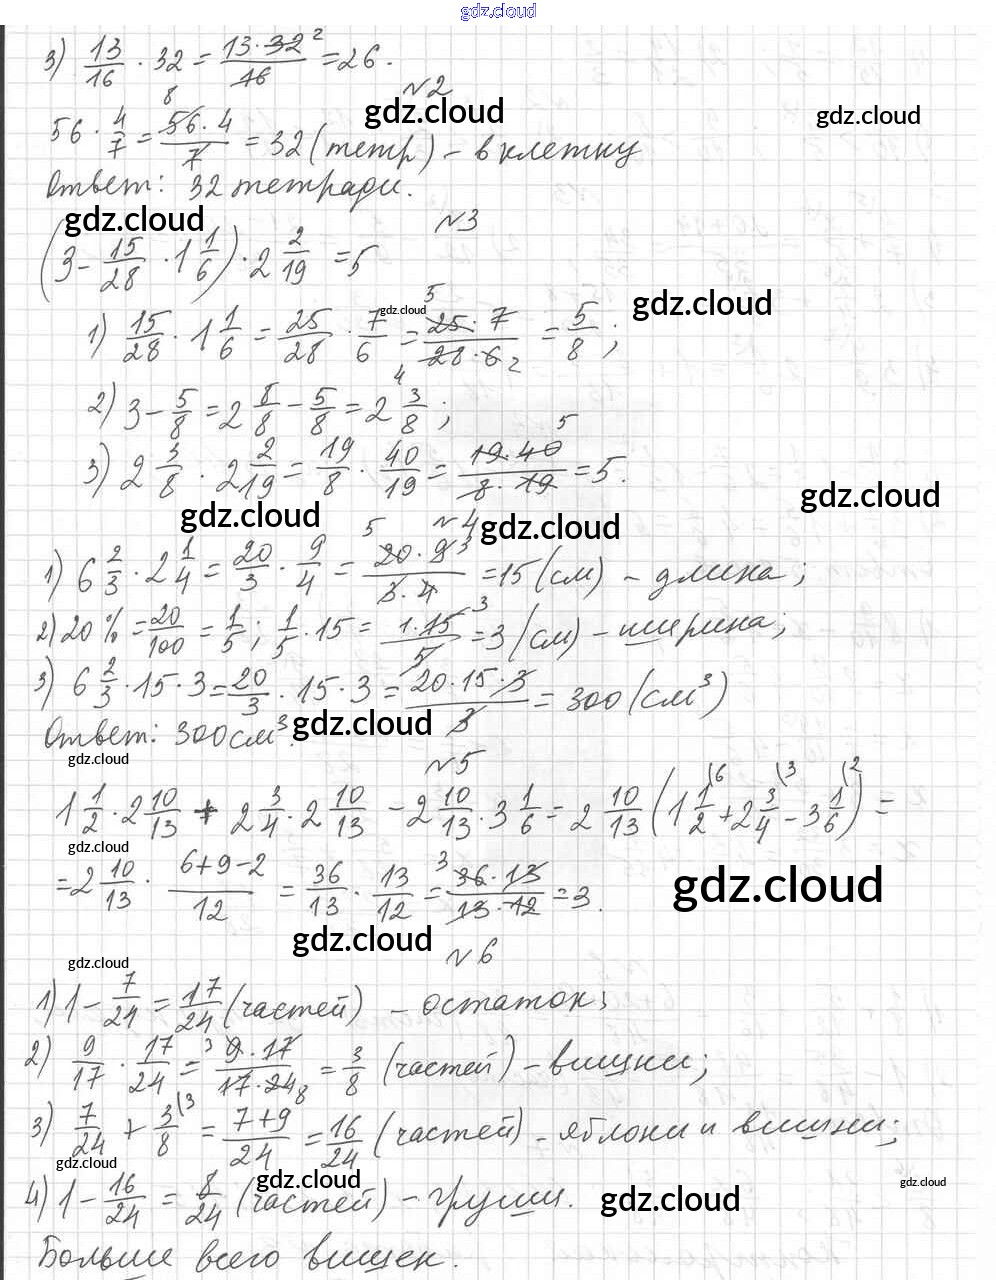 gdz.cloud
3) 13/16 · 32 = 13·32²/16 = 26.
№2
gdz.cloud gdz.cloud
56 · 4/7 = 56⁸·4/7 = 32 (тетр) – в клетку
Ответ: 32 тетради.
gdz.cloud
№3
(3 - 15/28 · 1 1/6) · 2 2/19 = 5
gdz.cloud
gdz.cloud
1) 15/28 · 1 1/6 = 25/28 · 7/6 = 25⁵·7/28₄·6₂ = 5/8;
2) 3 - 5/8 = 2 8/8 - 5/8 = 2 3/8;
3) 2 3/8 · 2 2/19 = 19/8 · 40/19 = 19·40⁵/8·19 = 5.
gdz.cloud
gdz.cloud
№4
gdz.cloud
1) 6 2/3 · 2 1/4 = 20/3 · 9/4 = 20⁵·9³/3·4 = 15 (см) – длина;
2) 20% = 20/100 = 1/5; 1/5 · 15 = 1·15³/5 = 3 (см) – ширина;
3) 6 2/3 · 15 · 3 = 20/3 · 15 · 3 = 20·15·3/3 = 300 (см³)
Ответ: 300 см³.
gdz.cloud
gdz.cloud
№5
1 1/2 · 2 10/13 + 2 3/4 · 2 10/13 - 2 10/13 · 3 1/6 = 2 10/13 (1 1/2\⁶ + 2 3/4\³ - 3 1/6\²) =
gdz.cloud
= 2 10/13 · 6+9-2/12 = 36/13 · 13/12 = ³36·13/13·12 = 3.
gdz.cloud
gdz.cloud
№6
gdz.cloud
1) 1 - 7/24 = 17/24 (частей) – остаток;
2) 9/17 · 17/24 = ³9·17/17·24₈ = 3/8 (частей) – вишни;
3) 7/24 + 3/8\³ = 7+9/24 = 16/24 (частей) – яблони и вишни;
gdz.cloud
gdz.cloud
gdz.cloud
4) 1 - 16/24 = 8/24 (частей) – груши.
gdz.cloud
Больше всего вишен.